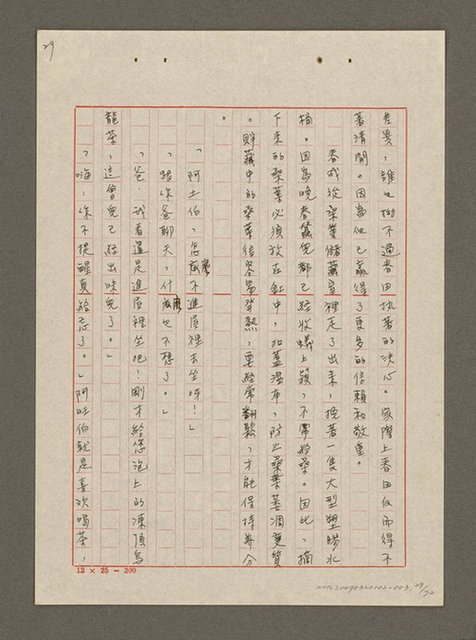 29
差異，誰也拗不過春田執著的決心。實際上春田反而得不
著清閒。因為他已贏得了更多的信賴和敬重。
春旺從桑葉儲藏室裡走了出來，拽著一隻大型塑膠水
桶。因為晚春蠶兒都已經收蟻上簇，不需給桑。因此，摘
下來的桑葉必須放在缸中，加蓋濕布，防止桑葉萎凋變質
。貯藏中的桑葉倍容易發熱，要經常翻鬆，才能保持養分
。
「阿土伯，怎麼不進屋裡去坐呀！」
「跟你爸聊天，什麼也不想了。」
「爸，我看還是進屋裡坐吧！剛才給您泡上的凍頂烏
龍茶，這會兒已經出味兒了。」
「嗨！你不提醒，夏給忘了。」阿旺伯就是喜歡喝茶，
12 × 25 = 300
NMTL20090320102-003
29/72